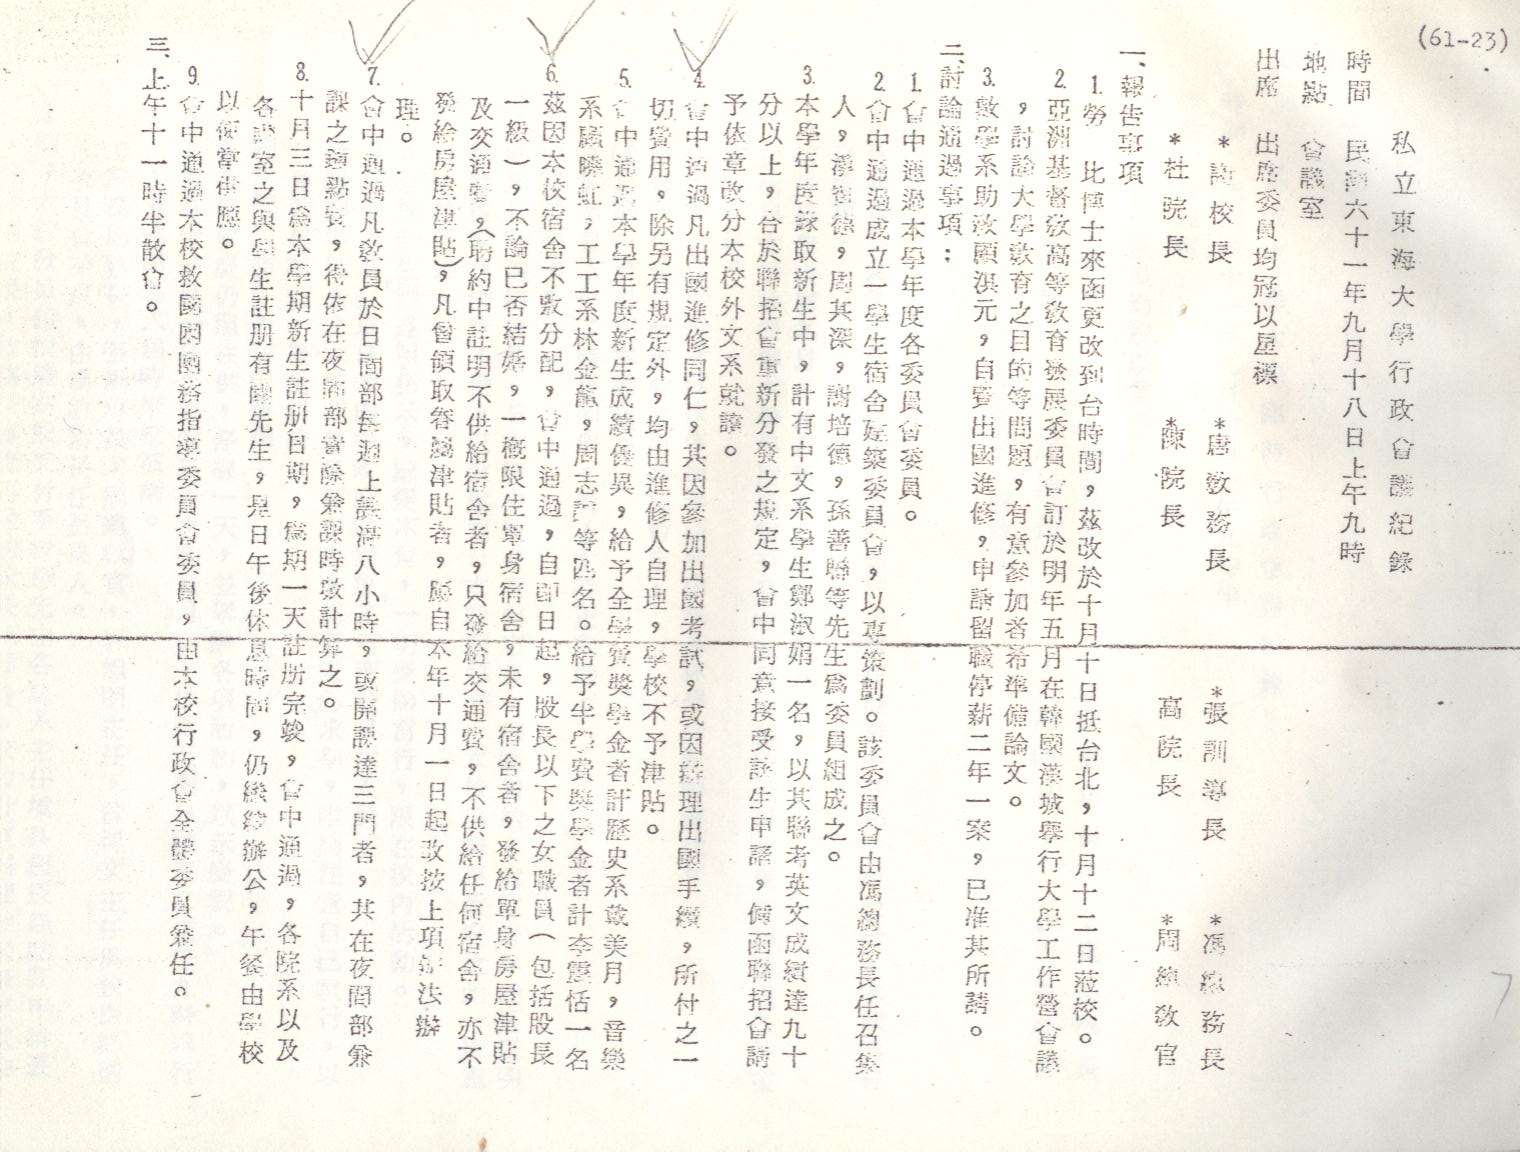 (61-23)
私立東海大學行政會議紀錄
時間　民國六十一年九月十八日上午九時
地點　會議室
出席　出席委員均冠以星標
*謝校長　*唐教務長　*張訓導長　*馮總務長
*杜院長　*陳院長　高院長　*周總教官
一、報告事項
1.勞　比博士來函更改到台時間，茲改於十月十日抵台北，十月十二日蒞校。
2.亞洲基督教高等教育發展委員會訂於明年五月在韓國漢城舉行大學工作營會議
，討論大學教育之目的等問題，有意參加者希準備論文。
3.數學系助教顧淇元，自費出國進修，申請留職停薪二年一案，已准其所請。
二、討論通過事項：
1.會中通過本學年度各委員會委員。
2.會中通過成立一學生宿舍建築委員會，以專策劃。該委員會由馮總務長任召集
人，漢寶德，周其深，謝培德，孫善聯等先生為委員組成之。
3.本學年度錄取新生中，計有中文系學生鄭淑娟一名，以其聯考英文成績達九十
分以上，合於聯招會重新分發之規定，會中同意接受該生申請，備函聯招會請
予依章改分本校外文系就讀。
4.會中通過凡出國進修同仁，其因參加出國考試，或因辦理出國手續，所付之一
切費用，除另有規定外，均由進修人自理，學校不予津貼。
5.會中通過本學年度新生成績優異，給予全學費獎學金者計歷史系戴美月，音樂
系龐曉虹，工工系林金龍，周志等四名。給予半學費獎學金者計李震恬一名
6.茲因本校宿舍不敷分配，會中通過，自即日起，股長以下之女職員（包括股長
一級），不論已否結婚，一概限住單身宿舍，未有宿舍者，發給單身房屋津貼
及交通費，（聘約中註明不供給宿舍者，只發給交通費，不供給任何宿舍，亦不
發給房屋津貼），凡曾領取眷屬津貼者，應自本年十月一日起改按上項辦法辦
理。
7.會中通過凡教員於日間部每週上課滿八小時，或開課達三門者，其在夜間部兼
課之鐘點費，得依在夜間部實際兼課時數計算之。
8.十月三日為本學期新生註册日期，為期一天註册完竣，會中通過，各院系以及
各處室之與學生註册有關先生，是日午後休息時間，仍繼續辦公，午餐由學校
以便當供應。
9.會中通過本校救國團團務指導委員會委員，由本校行政會全體委員兼任。
三、上午十一時半散會。